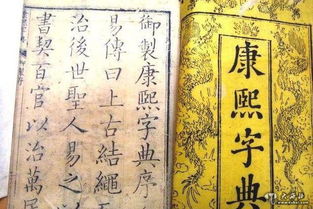 御製康熙字典序
易傳曰上古結繩而
治後世聖人易之以
書契百官以治萬民
康熙字典